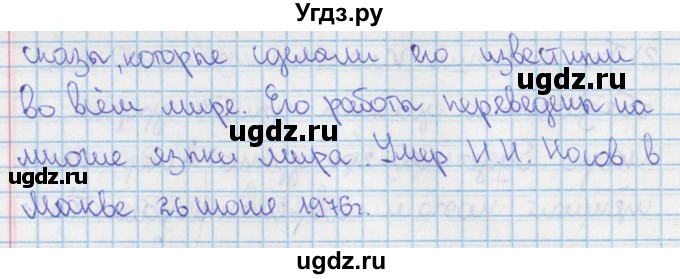 Угдз.ру
сказы, которые сделали его известным
во всём мире. Его работы переведены на
многие языки мира. Умер Н.Н. Носов в
Москве 26 июля 1976г.
ugdz.ru
ugdz.ru
ugdz.ru
ugdz.ru
ugdz.ru
ugdz.ru